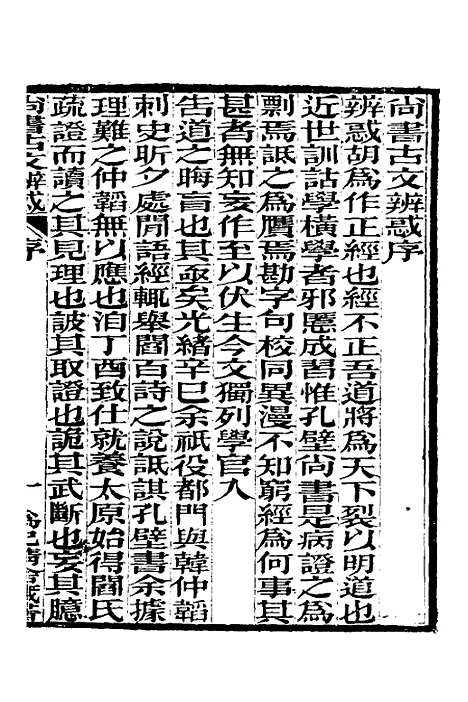 尚書古文辨惑序
辨惑胡為作正經也經不正吾道將為天下裂以明道也
近世訓詁學橫學者邪慝成習惟孔壁尚書是病證之為
剽焉詆之為贋焉勘字句校同異漫不知窮經為何事其
甚者無知妄作至以伏生今文獨列學官人
告道之晦盲也其亟矣光緒辛巳余祇役都門與韓仲韜
刺史昕夕處閒語經輒舉閻百詩之說詆諆孔壁書余據
理難之仲韜無以應也洎丁酉致仕就養太原始得閻氏
疏證而讀之其見理也詖其取證也詭其武斷也妄其臆
尚書古文辨惑 序 一